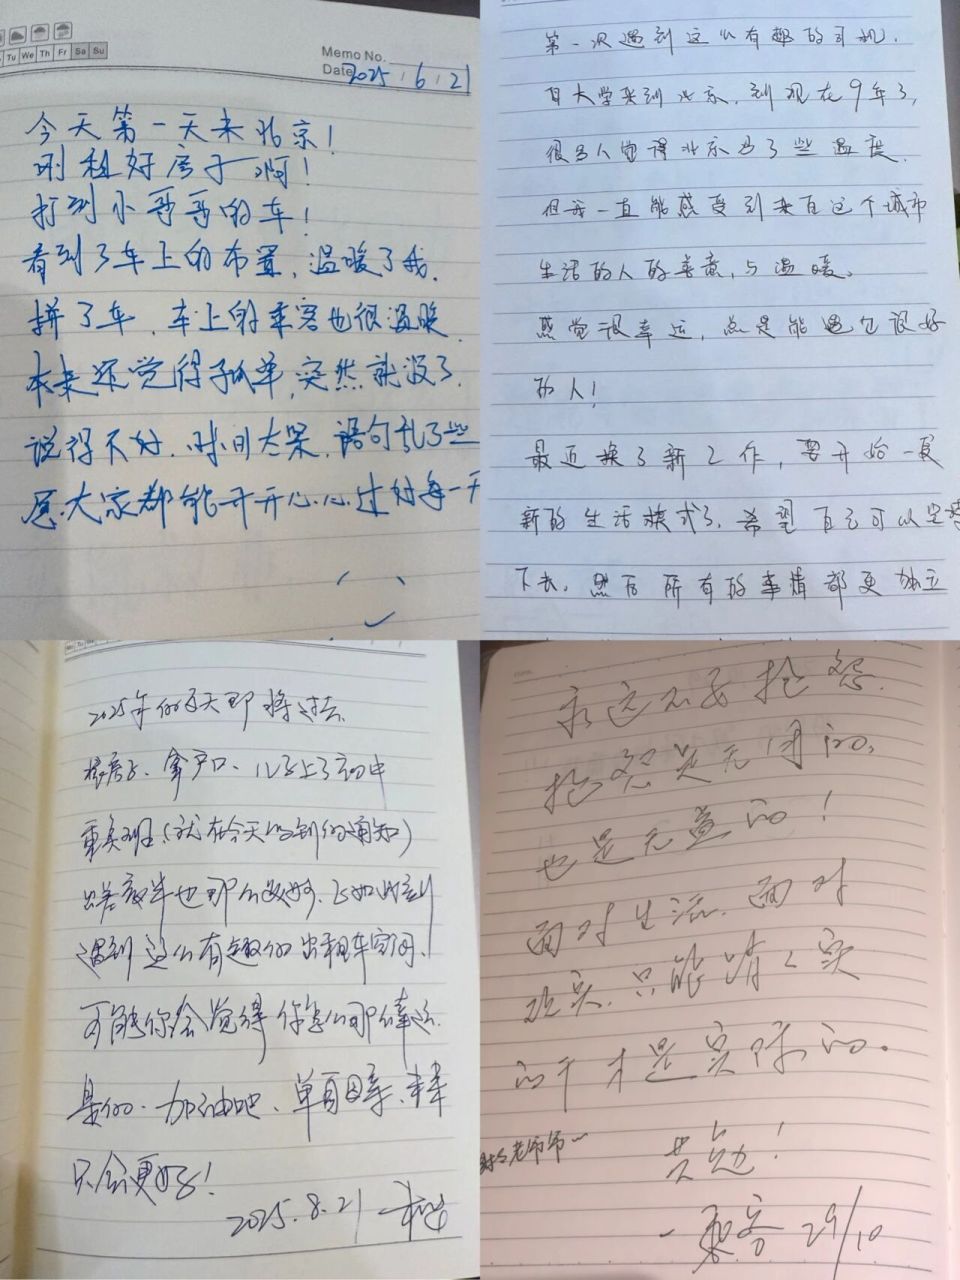 Memo No.
Tu We Th Fr Sa Su
Date 2025 / 6 / 21
今天第一天来北京！
刚租好房子啊！
打到小哥哥的车！
看到了车上的布置，温暖了我.
拼了车，车上的乘客也很温暖
本来还觉得孤单，突然就没了.
说得不好，时间太紧，语句乱了些
愿大家都能开开心心过好每一天
第一次遇到这么有趣的司机.
自大学来到北京，到现在9年了，
很多人觉得北京少了些温度.
但我一直能感受到来自这个城市
生活的人的善意，与温暖、
感觉很幸运，总是能遇见很好
的人！
最近换了新工作，要开始一段
新的生活模式了，希望自己可以坚持
下去，然后所有的事情都更加
2025年的夏天即将过去
换房子、拿户口、儿子上了初中
重点班（就在今天收到的通知）
遇到这么有趣的出租车空间、
可能你会觉得你怎么那么幸运
是的、加油吧、单页、未来
只会更好！
2025.8.21
永远不要抱怨.
抱怨是无用的，
也是无意的！
面对生活，面对
现实，只能踏踏实
的干才是实际的。
老师
共勉！
一乘客 29/10